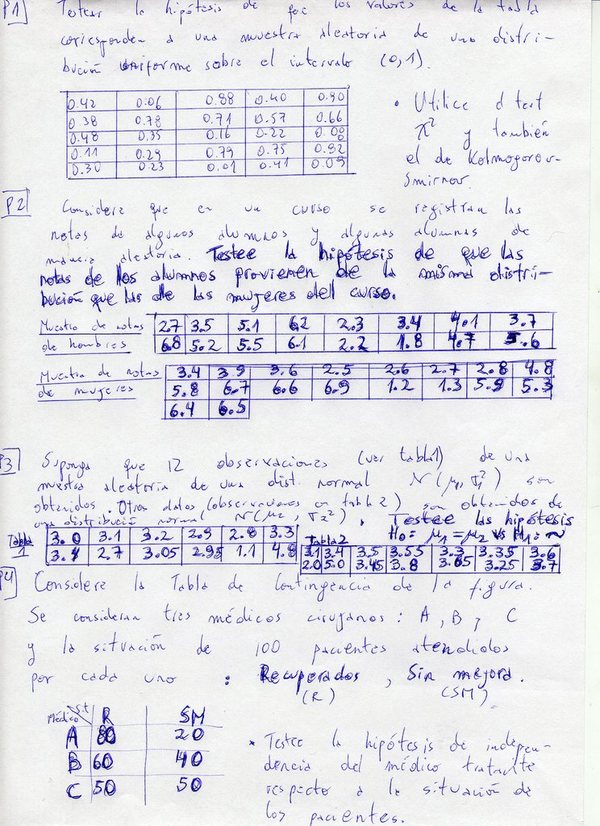 P1] Testear la hipótesis de que los valores de la tabla
corresponden a una muestra aleatoria de una distri-
bución uniforme sobre el intervalo (0,1).
0.42 0.06 0.88 0.40 0.90
0.38 0.78 0.71 0.57 0.66
0.48 0.35 0.16 0.22 0.08
0.11 0.29 0.79 0.75 0.82
0.30 0.23 0.01 0.41 0.09
• Utilice el test
χ² y también
el de Kolmogorov-
Smirnov.
P2] Considere que en un curso se registran las
notas de algunos alumnos y algunas alumnas de
manera aleatoria. Testee la hipótesis de que las
notas de los alumnos provienen de la misma distri-
bución que las de las mujeres del curso.
Muestra de notas
de hombres
2.7 3.5 5.1 6.2 2.3 3.4 4.1 3.7
6.8 5.2 5.5 6.1 2.2 1.8 4.7 5.6
Muestra de notas
de mujeres
3.4 3.9 3.6 2.5 2.6 2.7 2.8 4.8
5.8 6.7 6.6 6.9 1.2 1.3 5.9 5.3
6.4 6.5
P3] Suponga que 12 observaciones (ver tabla1) de una
muestra aleatoria de una dist. normal N(μ1, σ1²) son
obtenidos. Otros datos (observaciones en tabla 2) son obtenidos de
una distribución normal N(μ2, σ2²). Testee las hipótesis
H0: μ1 = μ2 vs H1: ~
Tabla 1
3.0 3.1 3.2 2.9 2.8 3.3
2.7 3.05 2.95 1.1 4.8
Tabla2
3.1 3.4 3.5 3.55 3.3 3.35 3.6
2.0 5.0 3.45 3.8 3.65 3.25 3.7
P4] Considere la Tabla de Contingencia de la figura.
Se consideran tres médicos cirujanos: A, B, C
y la situación de 100 pacientes atendidos
por cada uno : Recuperados , Sin mejora.
(R) (SM)
Médico st R SM
A 80 20
B 60 40
C 50 50
* Testee la hipótesis de indepen-
dencia del médico tratante
respecto a la situación de
los pacientes.